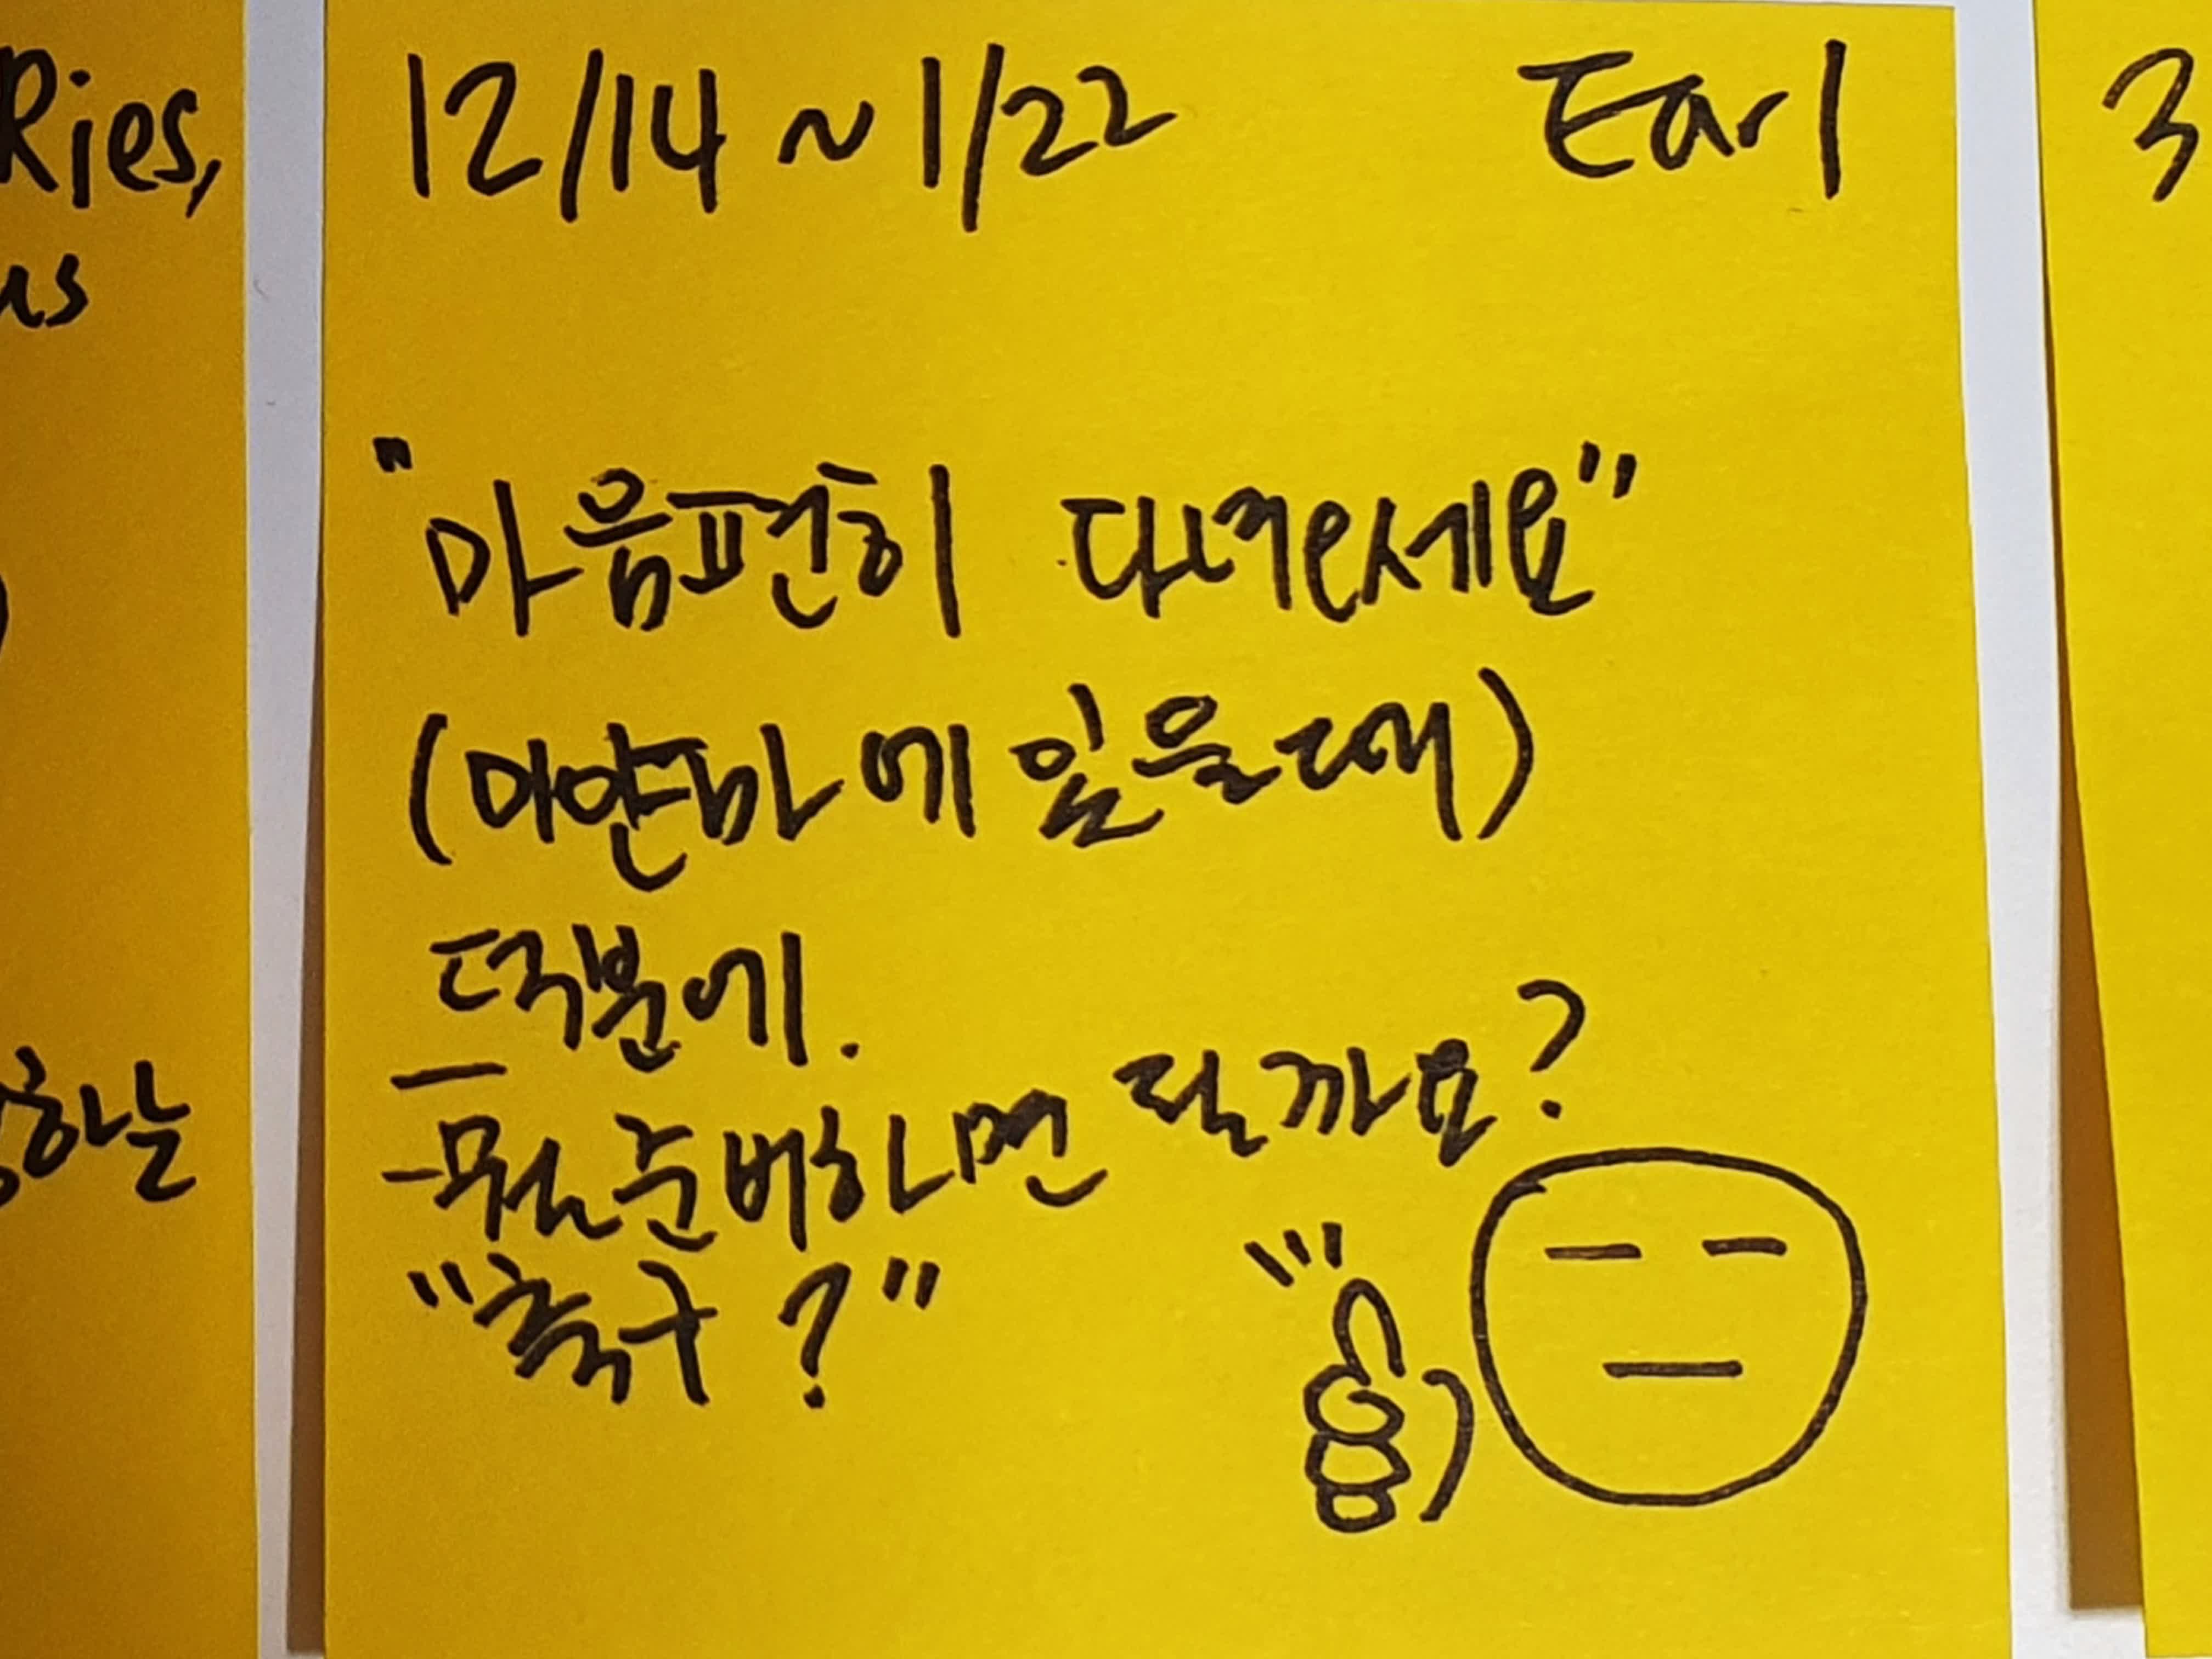 Ries,
us
하는
12/14 ~ 1/22 Earl
"마음편히 다녀오세요"
(미얀마에 있을때)
덕분에.
-뭐 준비하면 될까요?
"축구?"
3